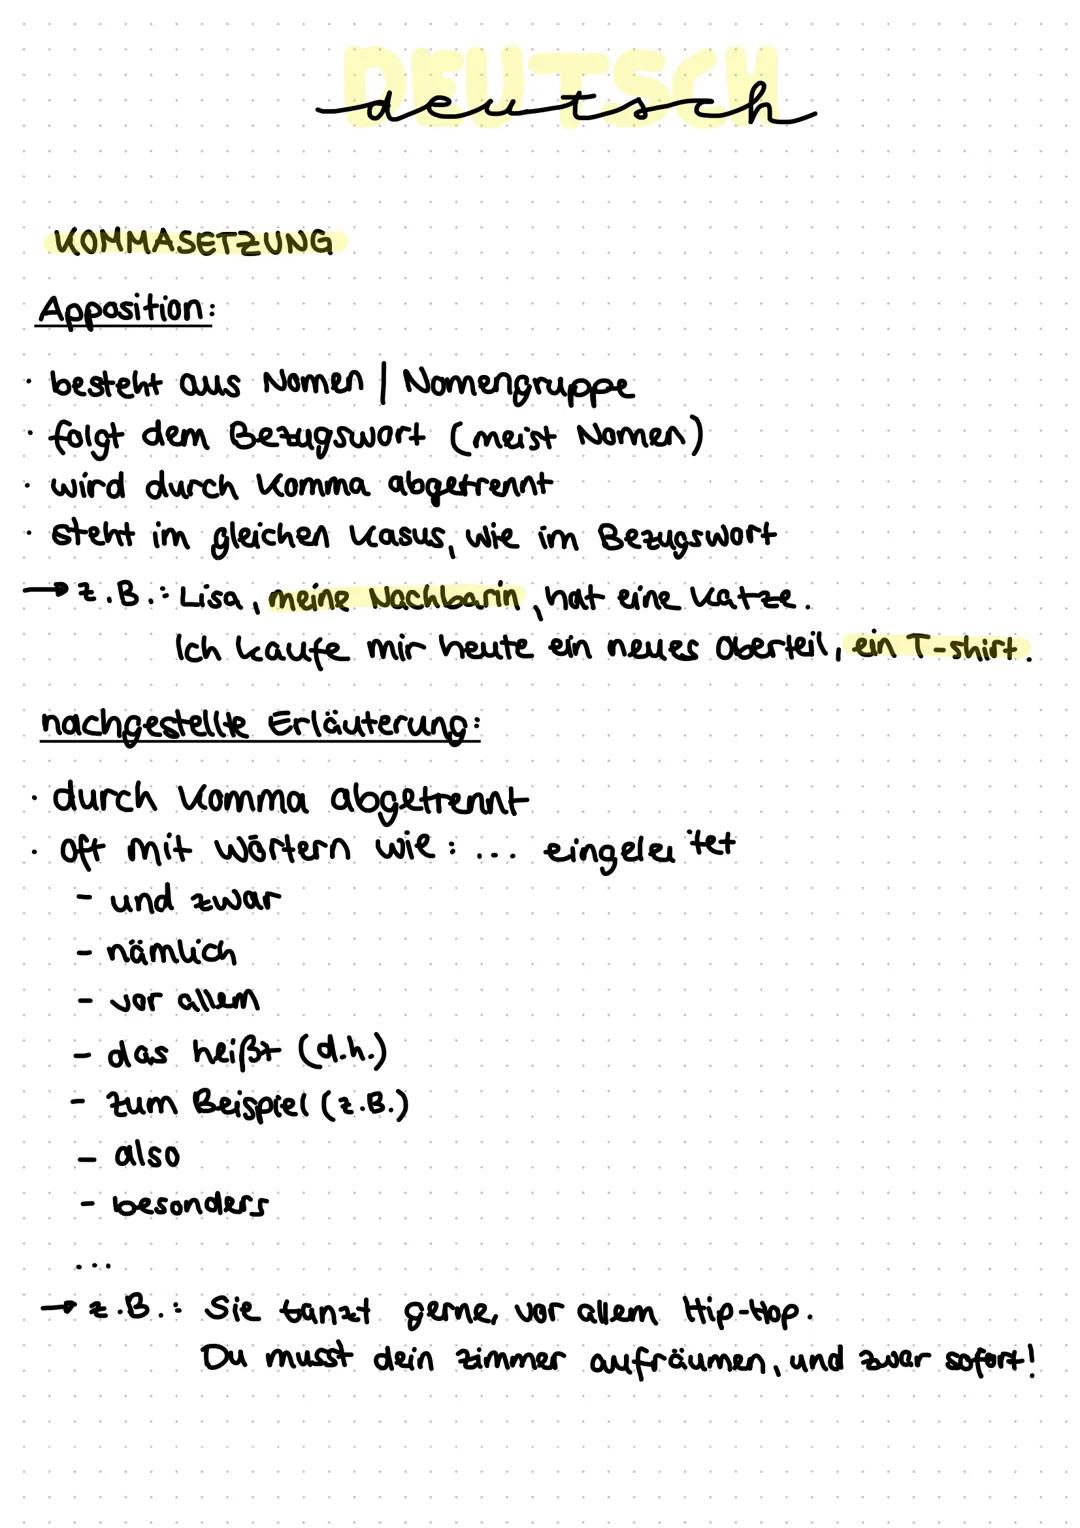 DEUTSCH
deutsch
KOMMASETZUNG
Apposition:
· besteht aus Nomen | Nomengruppe
· folgt dem Bezugswort (meist Nomen)
· wird durch Komma abgetrennt
· steht im gleichen Kasus, wie im Bezugswort
→ z.B.: Lisa, meine Nachbarin, hat eine Katze.
Ich kaufe mir heute ein neues Oberteil, ein T-shirt.
nachgestellte Erläuterung:
· durch Komma abgetrennt
· oft mit Wörtern wie: ... eingeleitet
- und zwar
- nämlich
- vor allem
- das heißt (d.h.)
- zum Beispiel (z.B.)
- also
- besonders
...
→ z.B.: Sie tanzt gerne, vor allem Hip-Hop.
Du musst dein Zimmer aufräumen, und zwar sofort!